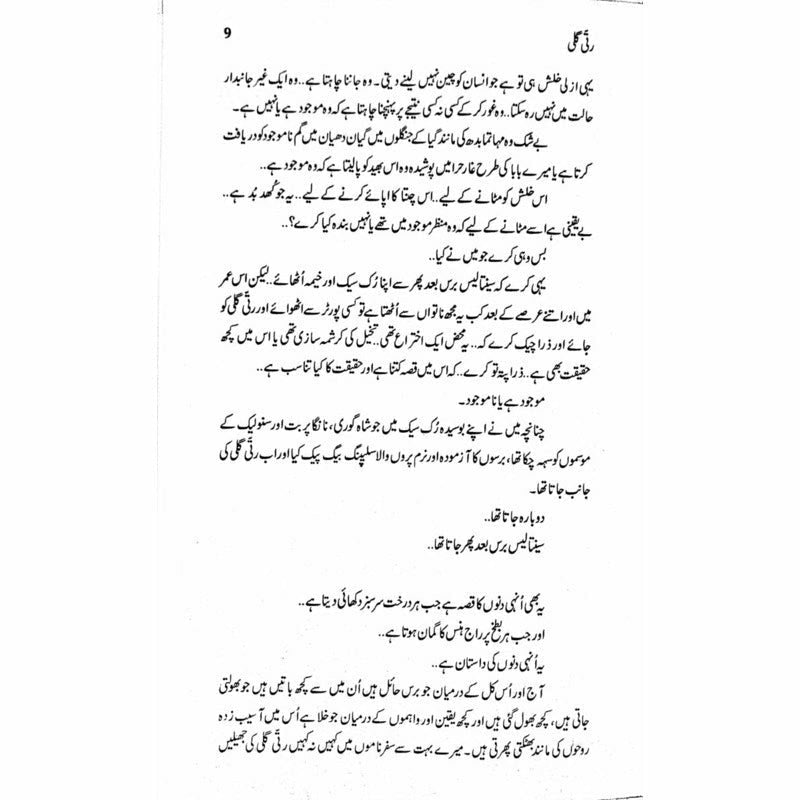 رتّی گلی
9
یہی ازلی خلش ہی تو ہے جو انسان کو چین نہیں لینے دیتی۔ وہ جاننا چاہتا ہے.. وہ ایک غیر جانبدار
حالت میں نہیں رہ سکتا.. وہ غور کر کے کسی نہ کسی نتیجے پر پہنچنا چاہتا ہے کہ وہ موجود ہے یا نہیں ہے۔
بے شک وہ مہاتما بدھ کی مانند گیا کے جنگلوں میں گیان دھیان میں گم ناموجود کو دریافت
کرتا ہے یا میرے بابا کی طرح غار حرا میں پوشیدہ وہ اس بھید کو پا لیتا ہے کہ وہ موجود ہے..
اس خلش کو مٹانے کے لیے.. اس چنتا کا اپائے کرنے کے لیے.. یہ جو کُھد بُد ہے..
بے یقینی ہے اسے مٹانے کے لیے کہ وہ منظر موجود میں تھے یا نہیں بندہ کیا کرے؟..
بس وہی کرے جو میں نے کیا..
یہی کرے کہ سینتالیس برس بعد پھر سے اپنا رُک سیک اور خیمہ اُٹھائے.. لیکن اس عمر
میں اور اتنے عرصے کے بعد کب یہ مجھ ناتواں سے اُٹھتا ہے تو کسی پورٹر سے اٹھوائے اور رتّی گلی کو
جائے اور ذرا چیک کرے کہ.. یہ محض ایک اختراع تھی.. تخیل کی کرشمہ سازی تھی یا اس میں کچھ
حقیقت بھی ہے.. ذرا پتہ تو کرے.. کہ اس میں قصہ کتنا ہے اور حقیقت کا کیا تناسب ہے..
موجود ہے یا ناموجود۔
چنانچہ میں نے اپنے بوسیدہ رُک سیک میں جو شاہ گوری، نانگا پربت اور سنولیک کے
موسموں کو سہہ چکا تھا، برسوں کا آزمودہ اور نرم پروں والا سلیپنگ بیگ پیک کیا اور اب رتّی گلی کی
جانب جاتا تھا۔
دوبارہ جاتا تھا..
سینتالیس برس بعد پھر جاتا تھا..
یہ بھی اُنہی دنوں کا قصہ ہے جب ہر درخت سرسبز دکھائی دیتا ہے..
اور جب ہر بطخ پر راج ہنس کا گمان ہوتا ہے..
یہ اُنہی دنوں کی داستان ہے..
آج اور اُس کل کے درمیان جو برس حائل ہیں اُن میں سے کچھ باتیں ہیں جو بھولتی
جاتی ہیں، کچھ بھول گئی ہیں اور کچھ یقین اور واہموں کے درمیان جو خلا ہے اُس میں آسیب زدہ
روحوں کی مانند بھٹکتی پھرتی ہیں۔ میرے بہت سے سفرناموں میں کہیں نہ کہیں رتّی گلی کی جھیلیں